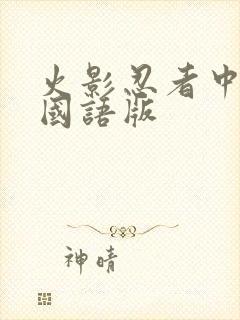 火影忍者中
國語版
神晴